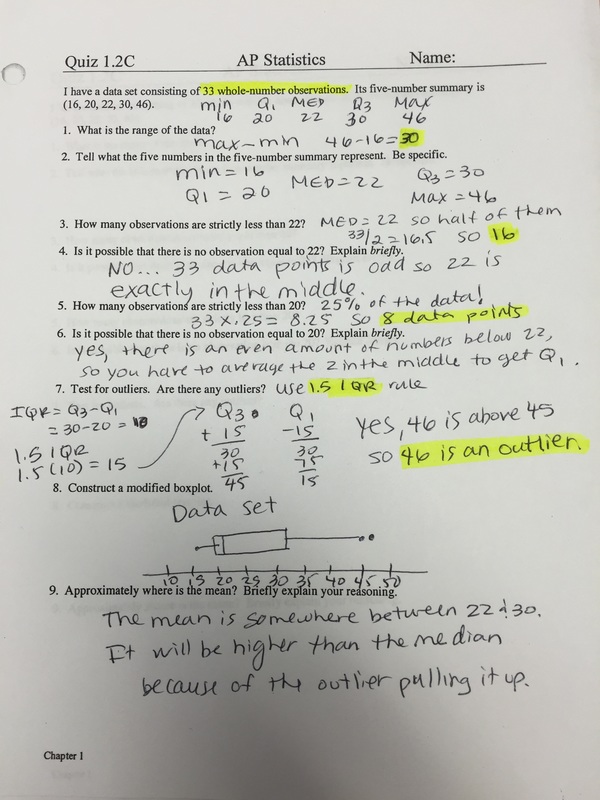 Quiz 1.2C AP Statistics Name:
I have a data set consisting of 33 whole-number observations. Its five-number summary is
(16, 20, 22, 30, 46). min Q1 MED Q3 Max
16 20 22 30 46
1. What is the range of the data?
max-min 46-16=30
2. Tell what the five numbers in the five-number summary represent. Be specific.
min=16 MED=22 Q3=30
Q1 = 20 Max=46
3. How many observations are strictly less than 22? MED=22 so half of them
33/2=16.5 so 16
4. Is it possible that there is no observation equal to 22? Explain briefly.
NO... 33 data points is odd so 22 is
exactly in the middle.
5. How many observations are strictly less than 20? 25% of the data!
33 x .25 = 8.25 so 8 data points
6. Is it possible that there is no observation equal to 20? Explain briefly.
yes, there is an even amount of numbers below 22,
so you have to average the 2 in the middle to get Q1.
7. Test for outliers. Are there any outliers? use 1.5 IQR rule
IQR = Q3-Q1
= 30-20 = 10
1.5 IQR
1.5(10) = 15
Q3 Q1
+15 -15
30 30
+15 15
45 15
yes, 46 is above 45
so 46 is an outlier.
8. Construct a modified boxplot.
Data set
10 15 20 25 30 35 40 45 50
9. Approximately where is the mean? Briefly explain your reasoning.
The mean is somewhere between 22 & 30.
It will be higher than the median
because of the outlier pulling it up.
Chapter 1